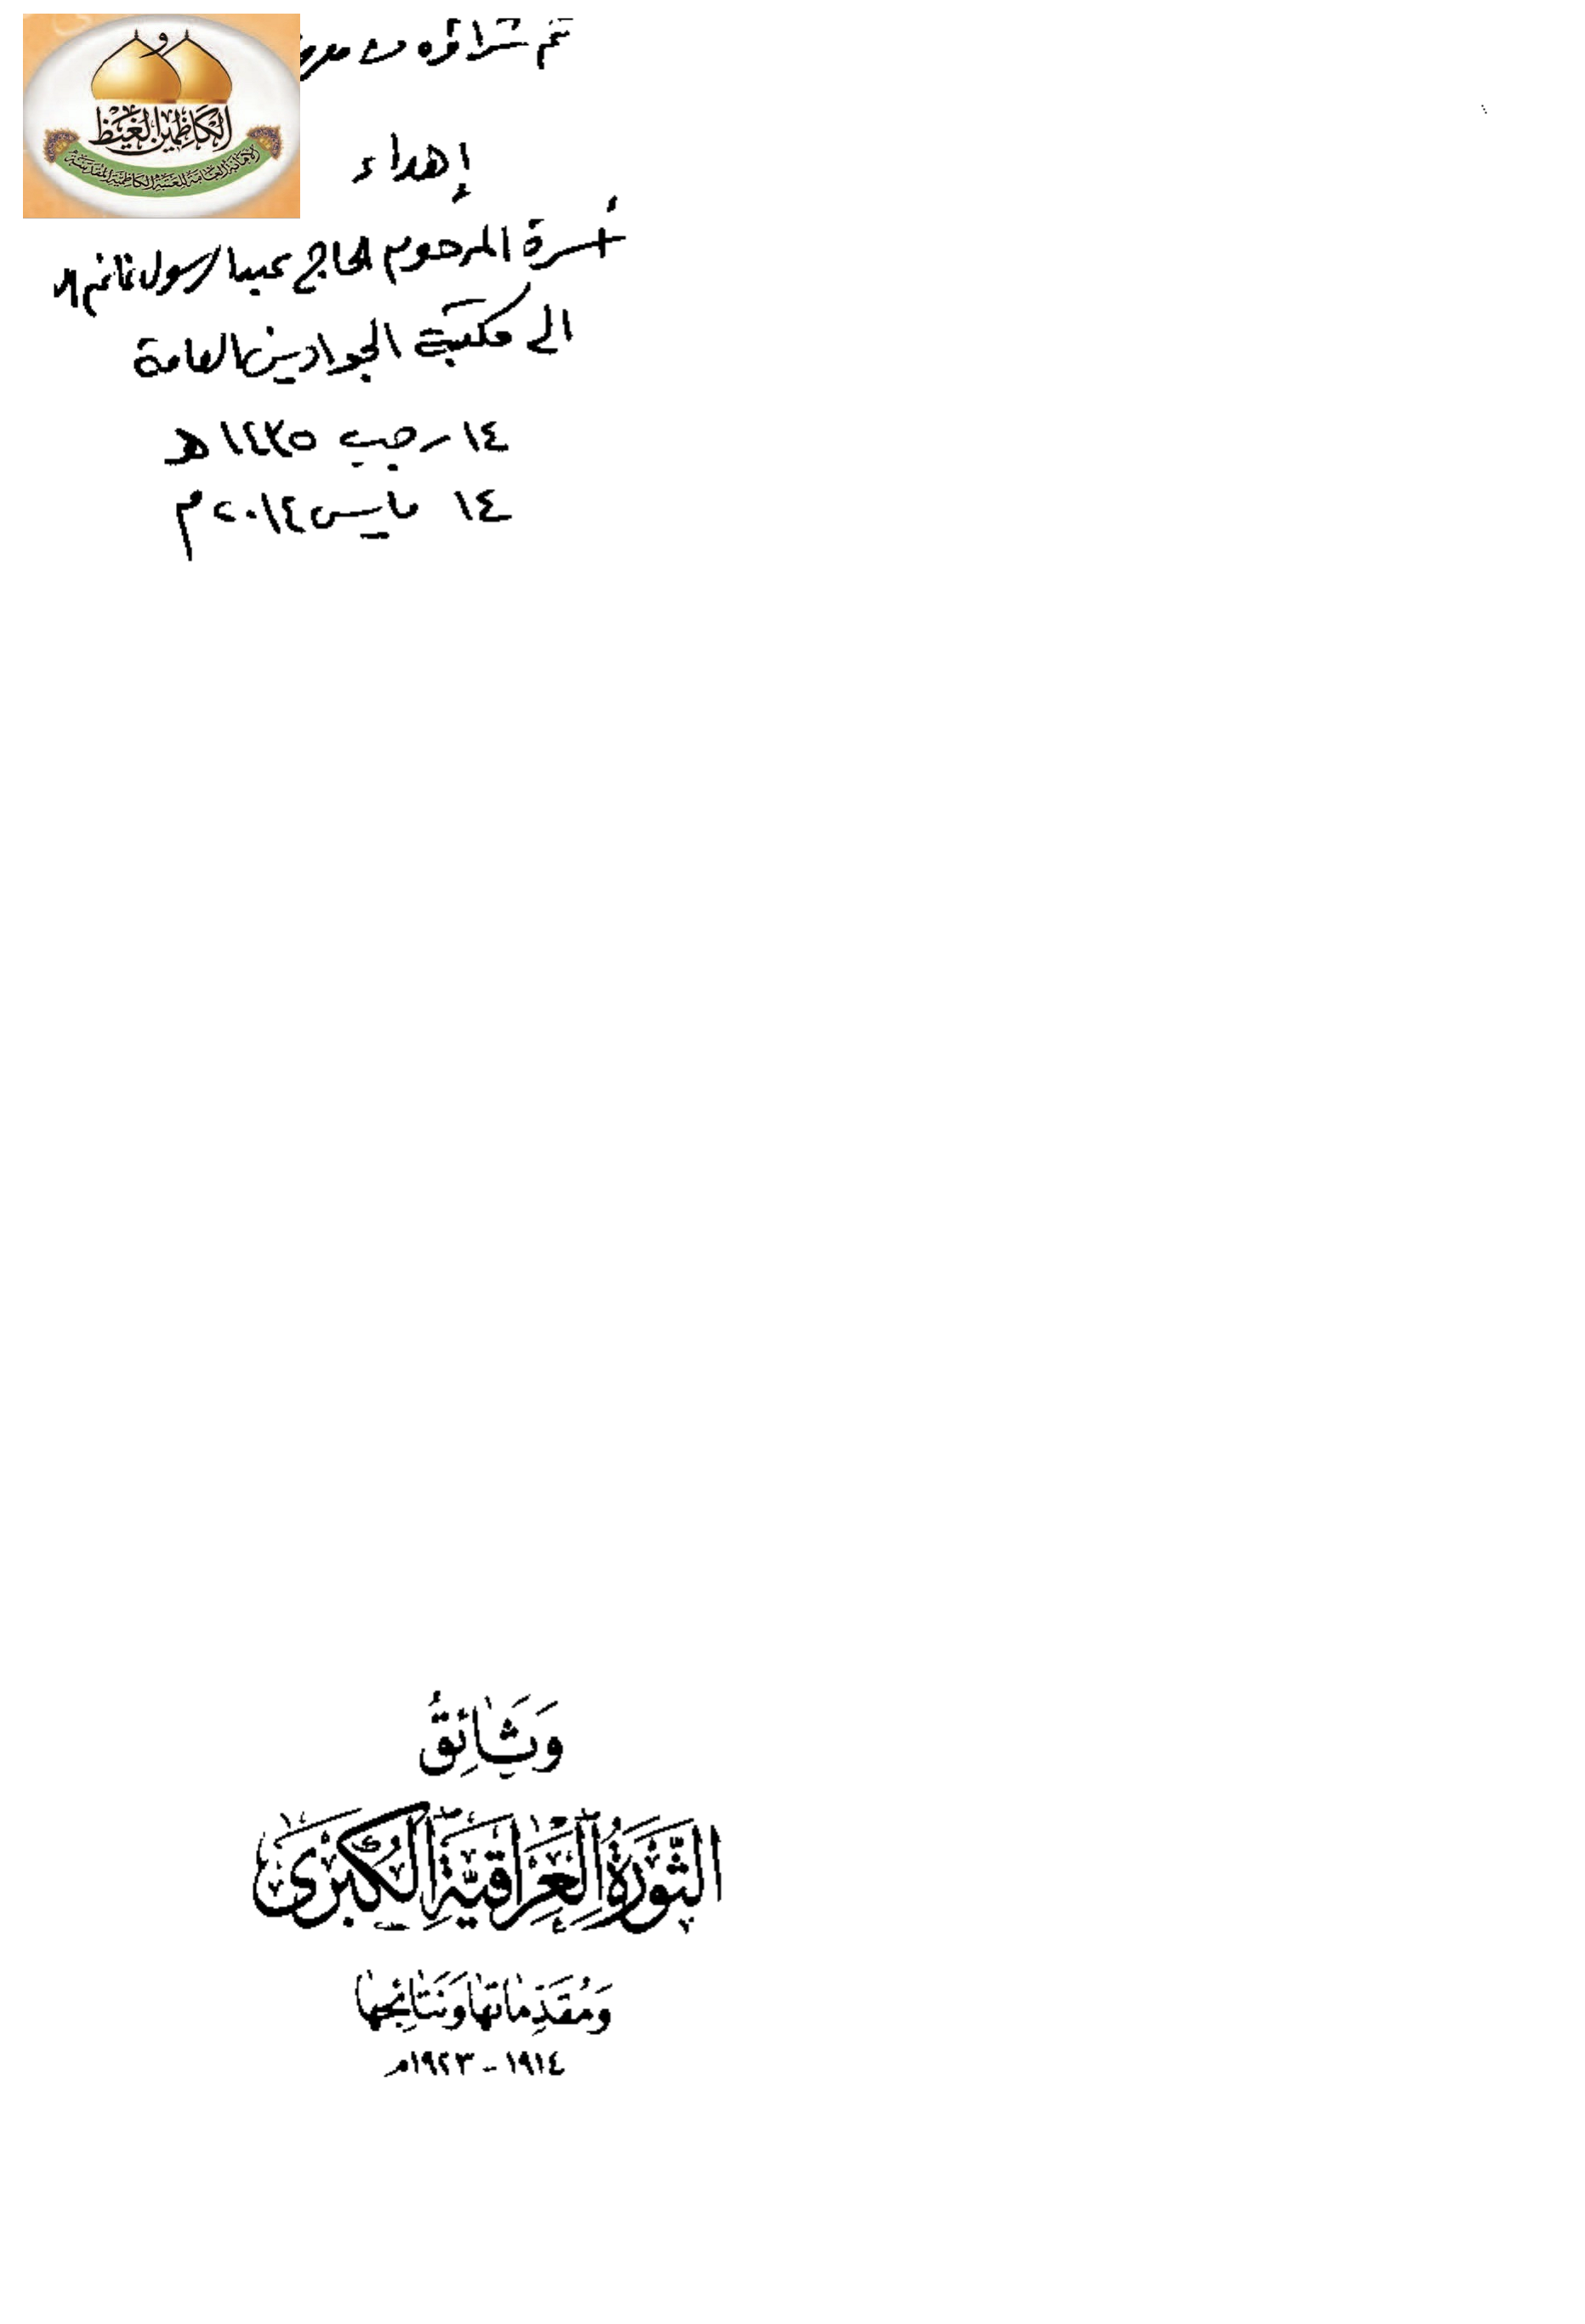 تم شراؤه من
و
الكاظمين الغيظ
الأمانة العامة للعتبة الكاظمية المقدسة
إهداء
أسرة المرحوم الحاج عبد الرسول
الى مكتبة الجوادين العامة
١٤ رجب ١٤٣٥ هـ
١٤ مايس ٢٠١٤ م
وَثَائِقُ
الثَّوْرَةُ الْعِرَاقِيَّةِ الْكُبْرَى
وَمُقَدِّمَاتِهَا وَنَتَائِجِهَا
١٩١٤ - ١٩٢٣م